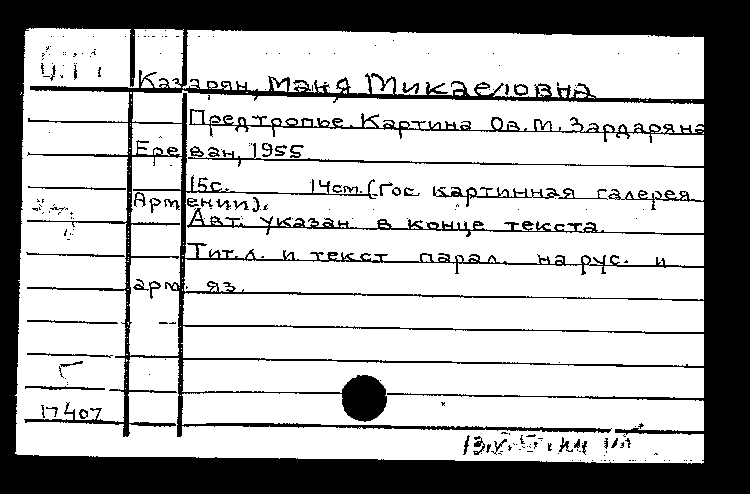 Казарян, Маня Микаеловна
Предтропье. Картина Ов. М. Зардаряна
Ереван, 1955
15с. 14см. (Гос картинная галерея
Армении).
Авт. указан в конце текста.
Тит. л. и текст парал. на рус. и
арм. яз.
17407